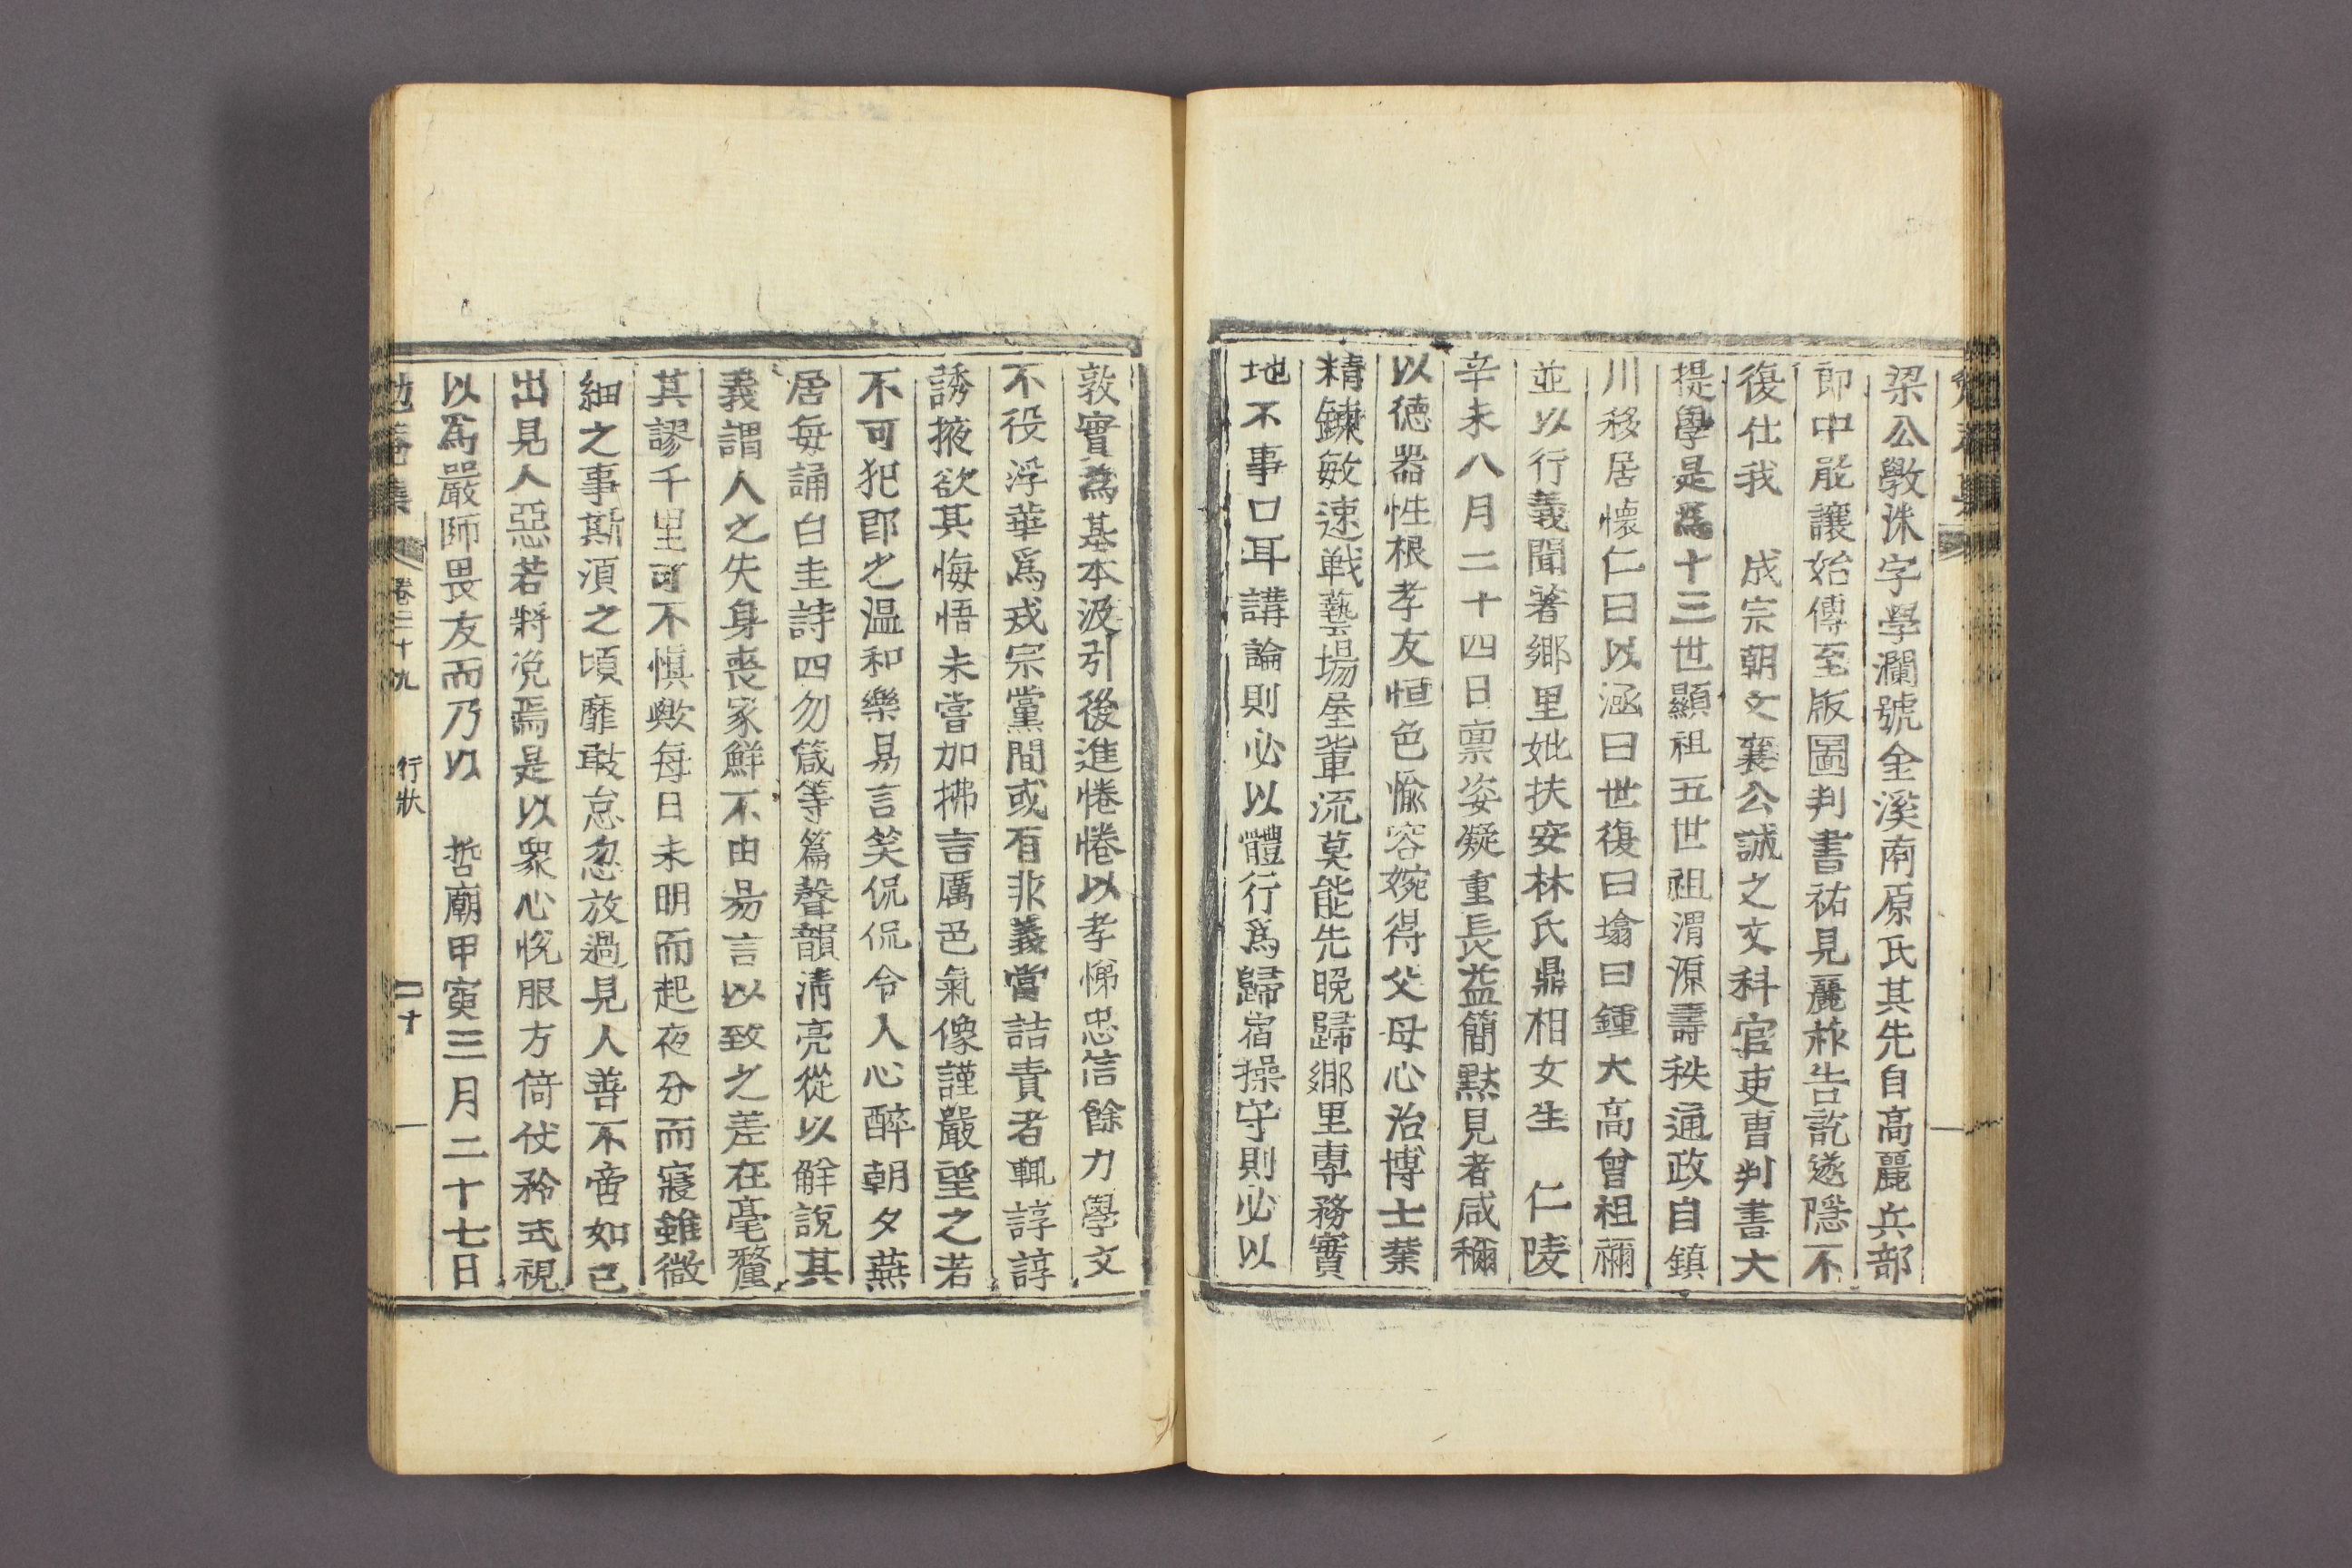 梁公斅洙字學瀾號金溪南原氏其先自高麗兵部
郎中能讓始傳至版圖判書祐見麗祚告訖遂隱不
復仕我 成宗朝文襄公誠之文科官吏曹判書大
提學是爲十三世顯祖五世祖渭源壽秩通政自鎮
川移居懷仁曰以涵曰世復曰塢曰鍾大高曾祖禰
並以行義聞著鄉里妣扶安林氏鼎相女生 仁陵
辛未八月二十四日禀姿凝重長益簡默見者咸稱
以德器性根孝友恒色愉容婉得父母心治博士業
精鍊敏速戰藝場屋輩流莫能先晚歸鄉里專務實
地不事口耳講論則必以體行爲歸宿操守則必以
敦實爲基本汲引後進惓惓以孝悌忠信餘力學文
不役浮華爲戒宗黨間或有非義當詰責者輒諄諄
誘掖欲其悔悟未嘗加拂言厲色氣像謹嚴望之若
不可犯即之温和樂易言笑侃侃令人心醉朝夕燕
居每誦白圭詩四勿箴等篇聲韻淸亮從以解說其
義謂人之失身喪家鮮不由易言以致之差在毫釐
其謬千里可不愼歟每日未明而起夜分而寢雖微
細之事斯須之頃靡敢怠忽放過見人善不啻如己
出見人惡若將浼焉是以衆心悅服方倚仗矜式視
以爲嚴師畏友而乃以 哲廟甲寅三月二十七日
勉菴集 卷三十九 行狀 二十